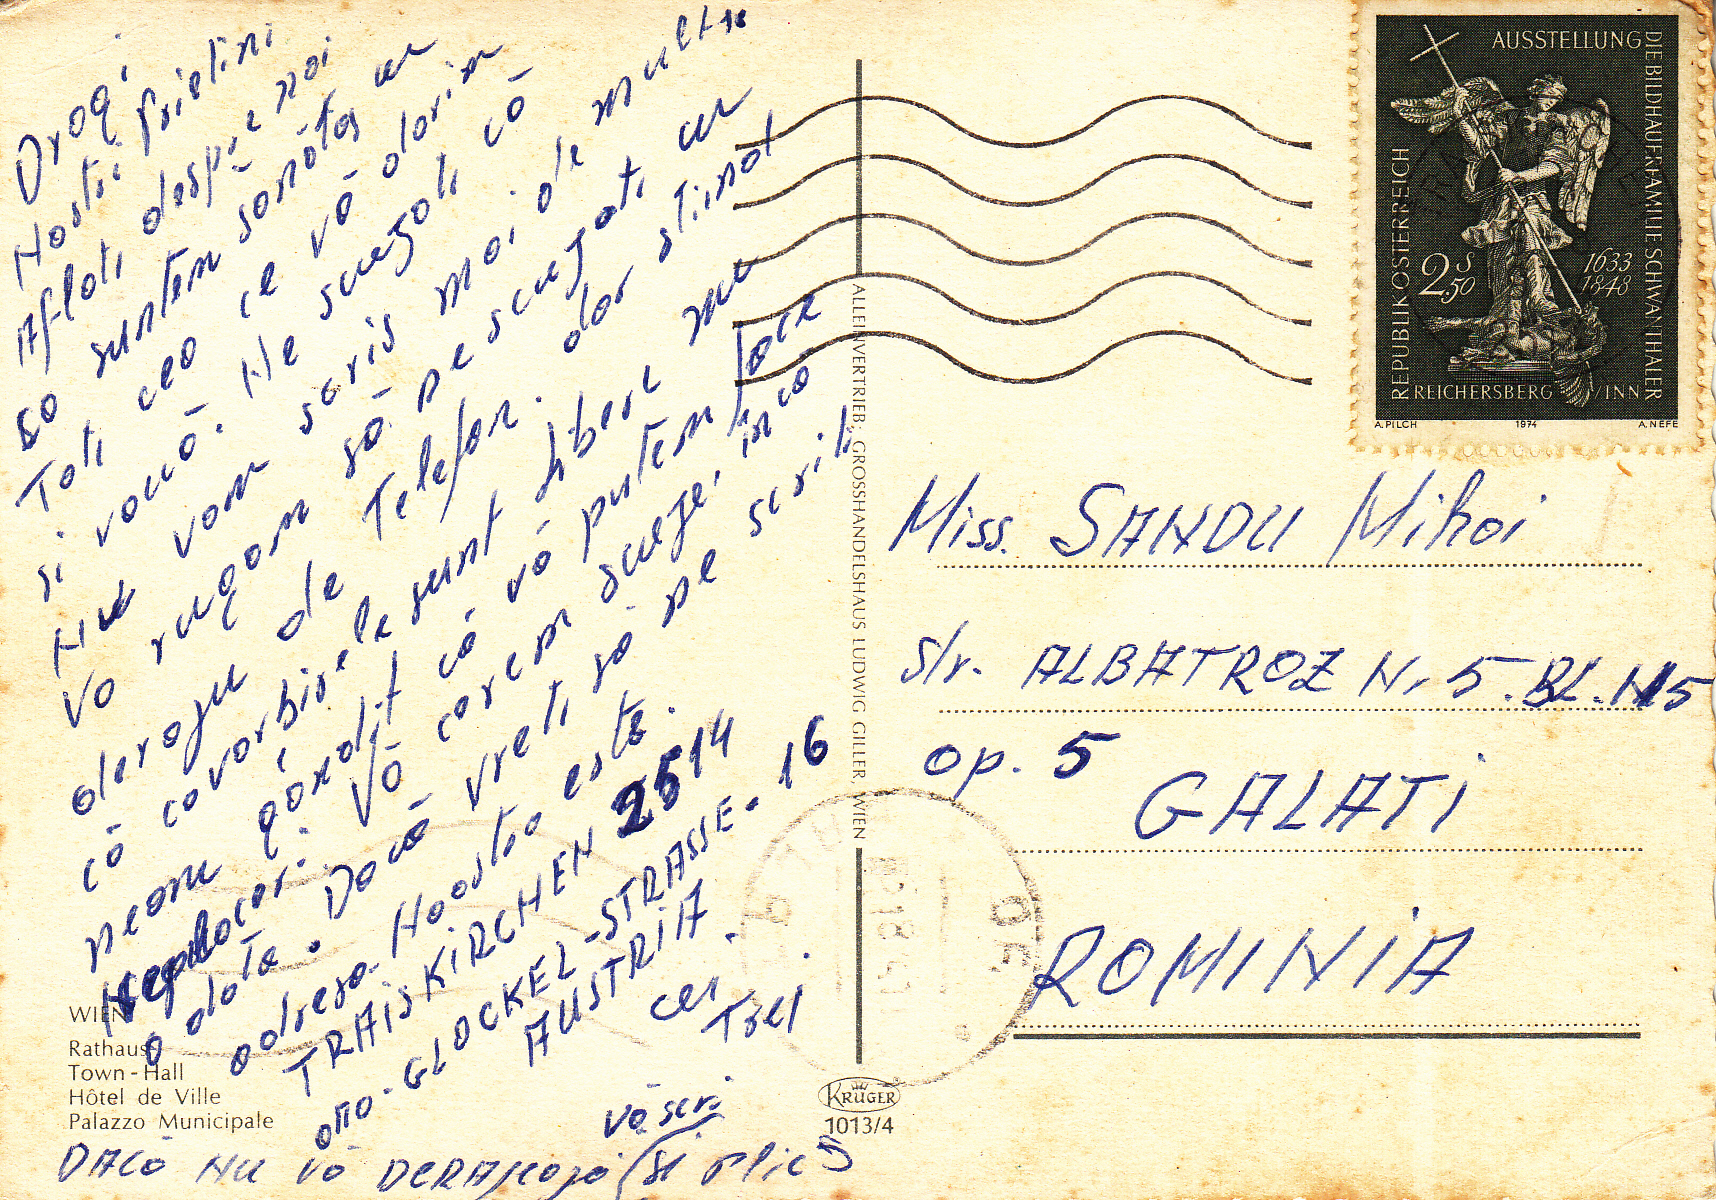 Drogi
Nostri prietini
Aflati despre noi
so suntem sonōtos cu
Toti ceo ce vō dorim
si vouō. Ne scuzoti cō
Nu vom scris moi de multe
Vo rugom sō ne scuzati cu
deroju de Telefon. dor stinol
cō covorbirele sunt libere nu
neom gōndit cō vō putem foce
Neplocer. Vō cerem scuze, inco
o dota. Docō vreti sō ne scriti
odreso Noostro este.
TRAiSKiRCHEN 2514
OTTO-GLOCKEL-STRASSE. 16
AUSTRiA
cei
Trei
DACō NU vō DERAJEOZō (si plic 5
vō scri
WIEN
Rathaus
Town-Hall
Hôtel de Ville
Palazzo Municipale
ALLEINVERTRIEB: GROSSHANDELSHAUS LUDWIG GILLER, WIEN
KRÜGER
1013/4
AUSSTELLUNG
DIE BILDHAUERFAMILIE SCHWANTHALER
REPUBLIK ÖSTERREICH
2 S 50
1633
1848
REICHERSBERG /INN
A. PILCH 1974 A. NEFE
Miss. SANDU Mihoi
str. ALBATROZ Nr 5. BL. N15
op. 5
GALATi
ROMINiA